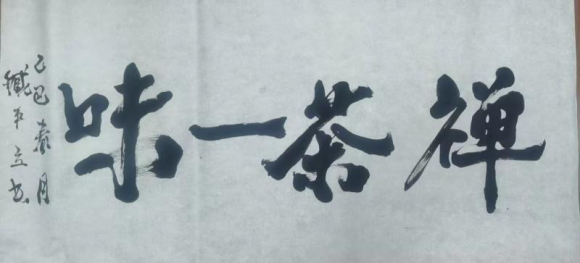 禅茶一味
己巳春月
平立书